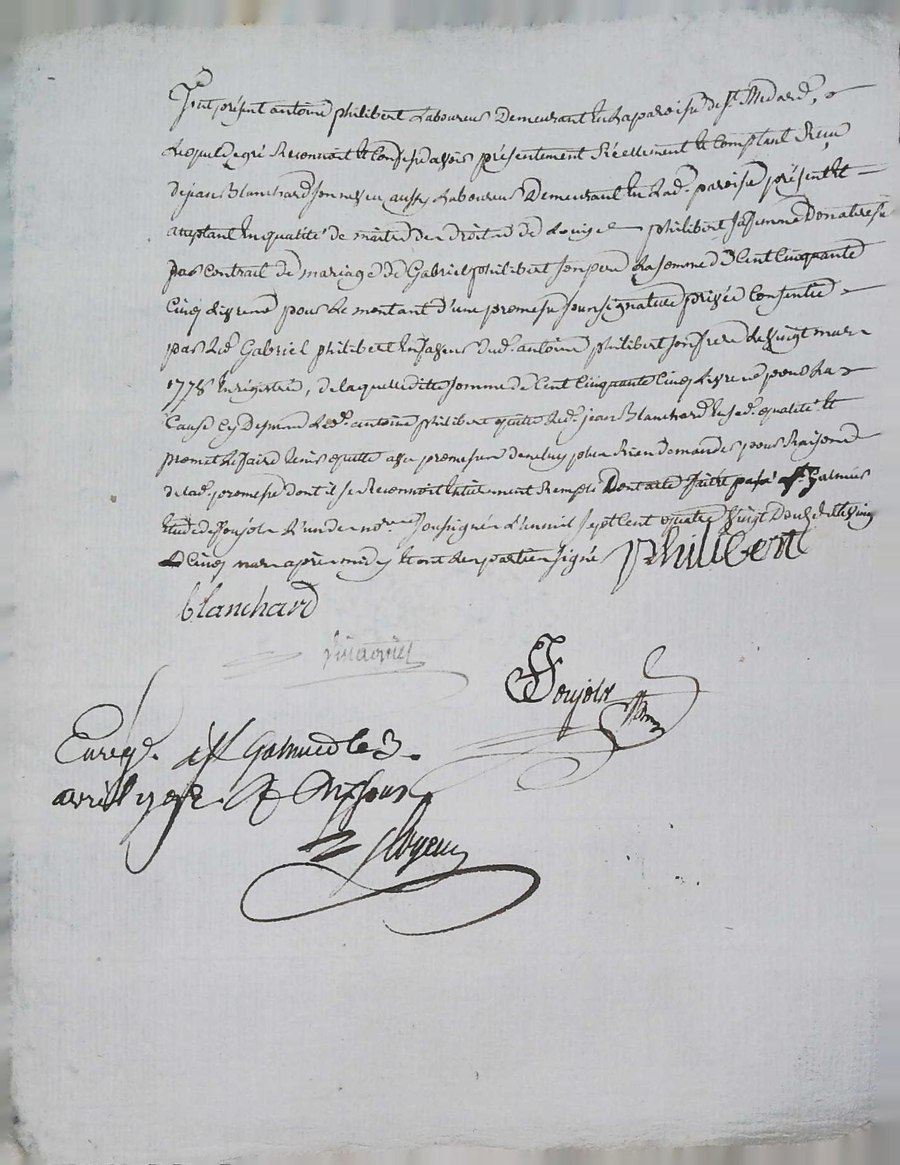 Fut présent antoine philibert Laboureur Demeurant En La paroisse de St. Medard,
Lequel de gré Reconnoit et Confesse avoir présentement Réellement et Comptant Reçu
de jean Blanchard son neveu aussy Laboureur Demeurant En Lad. paroisse présent et
acceptant En qualité de maitre des droits de Louise philibert sa femme Donataire
par Contrait de mariage de Gabriel philibert son pere La somme de Cent Cinquante
Cinq Livres pour Le montant d'une promesse sous signature privée Consentie
par Led. Gabriel philibert En faveur dud. antoine philibert son frere Le vingt mars
1778 Enregistrée, de laquelle ditte somme de Cent Cinquante Cinq Livres pour La
Cause Cy Dessus Led. antoine philibert quitte Led. jean Blanchard En sad. qualité et
promet Le faire tenir quitte avec promesse de ne luy plus Rien demander pour Raison
de lad. promesse dont il se Reconnoit Entierement Rempli Dont acte fait et passé à St. Galmier
Etude de Joujols L'un des nores. soussignés L'an mil sept Cent quatre vingt Douze Le vingt
Cinq mars après midy Et ont Les parties signé philibert
blanchard
Joujols
Enregé. à St Galmier le 3.
avril 1792. R sous